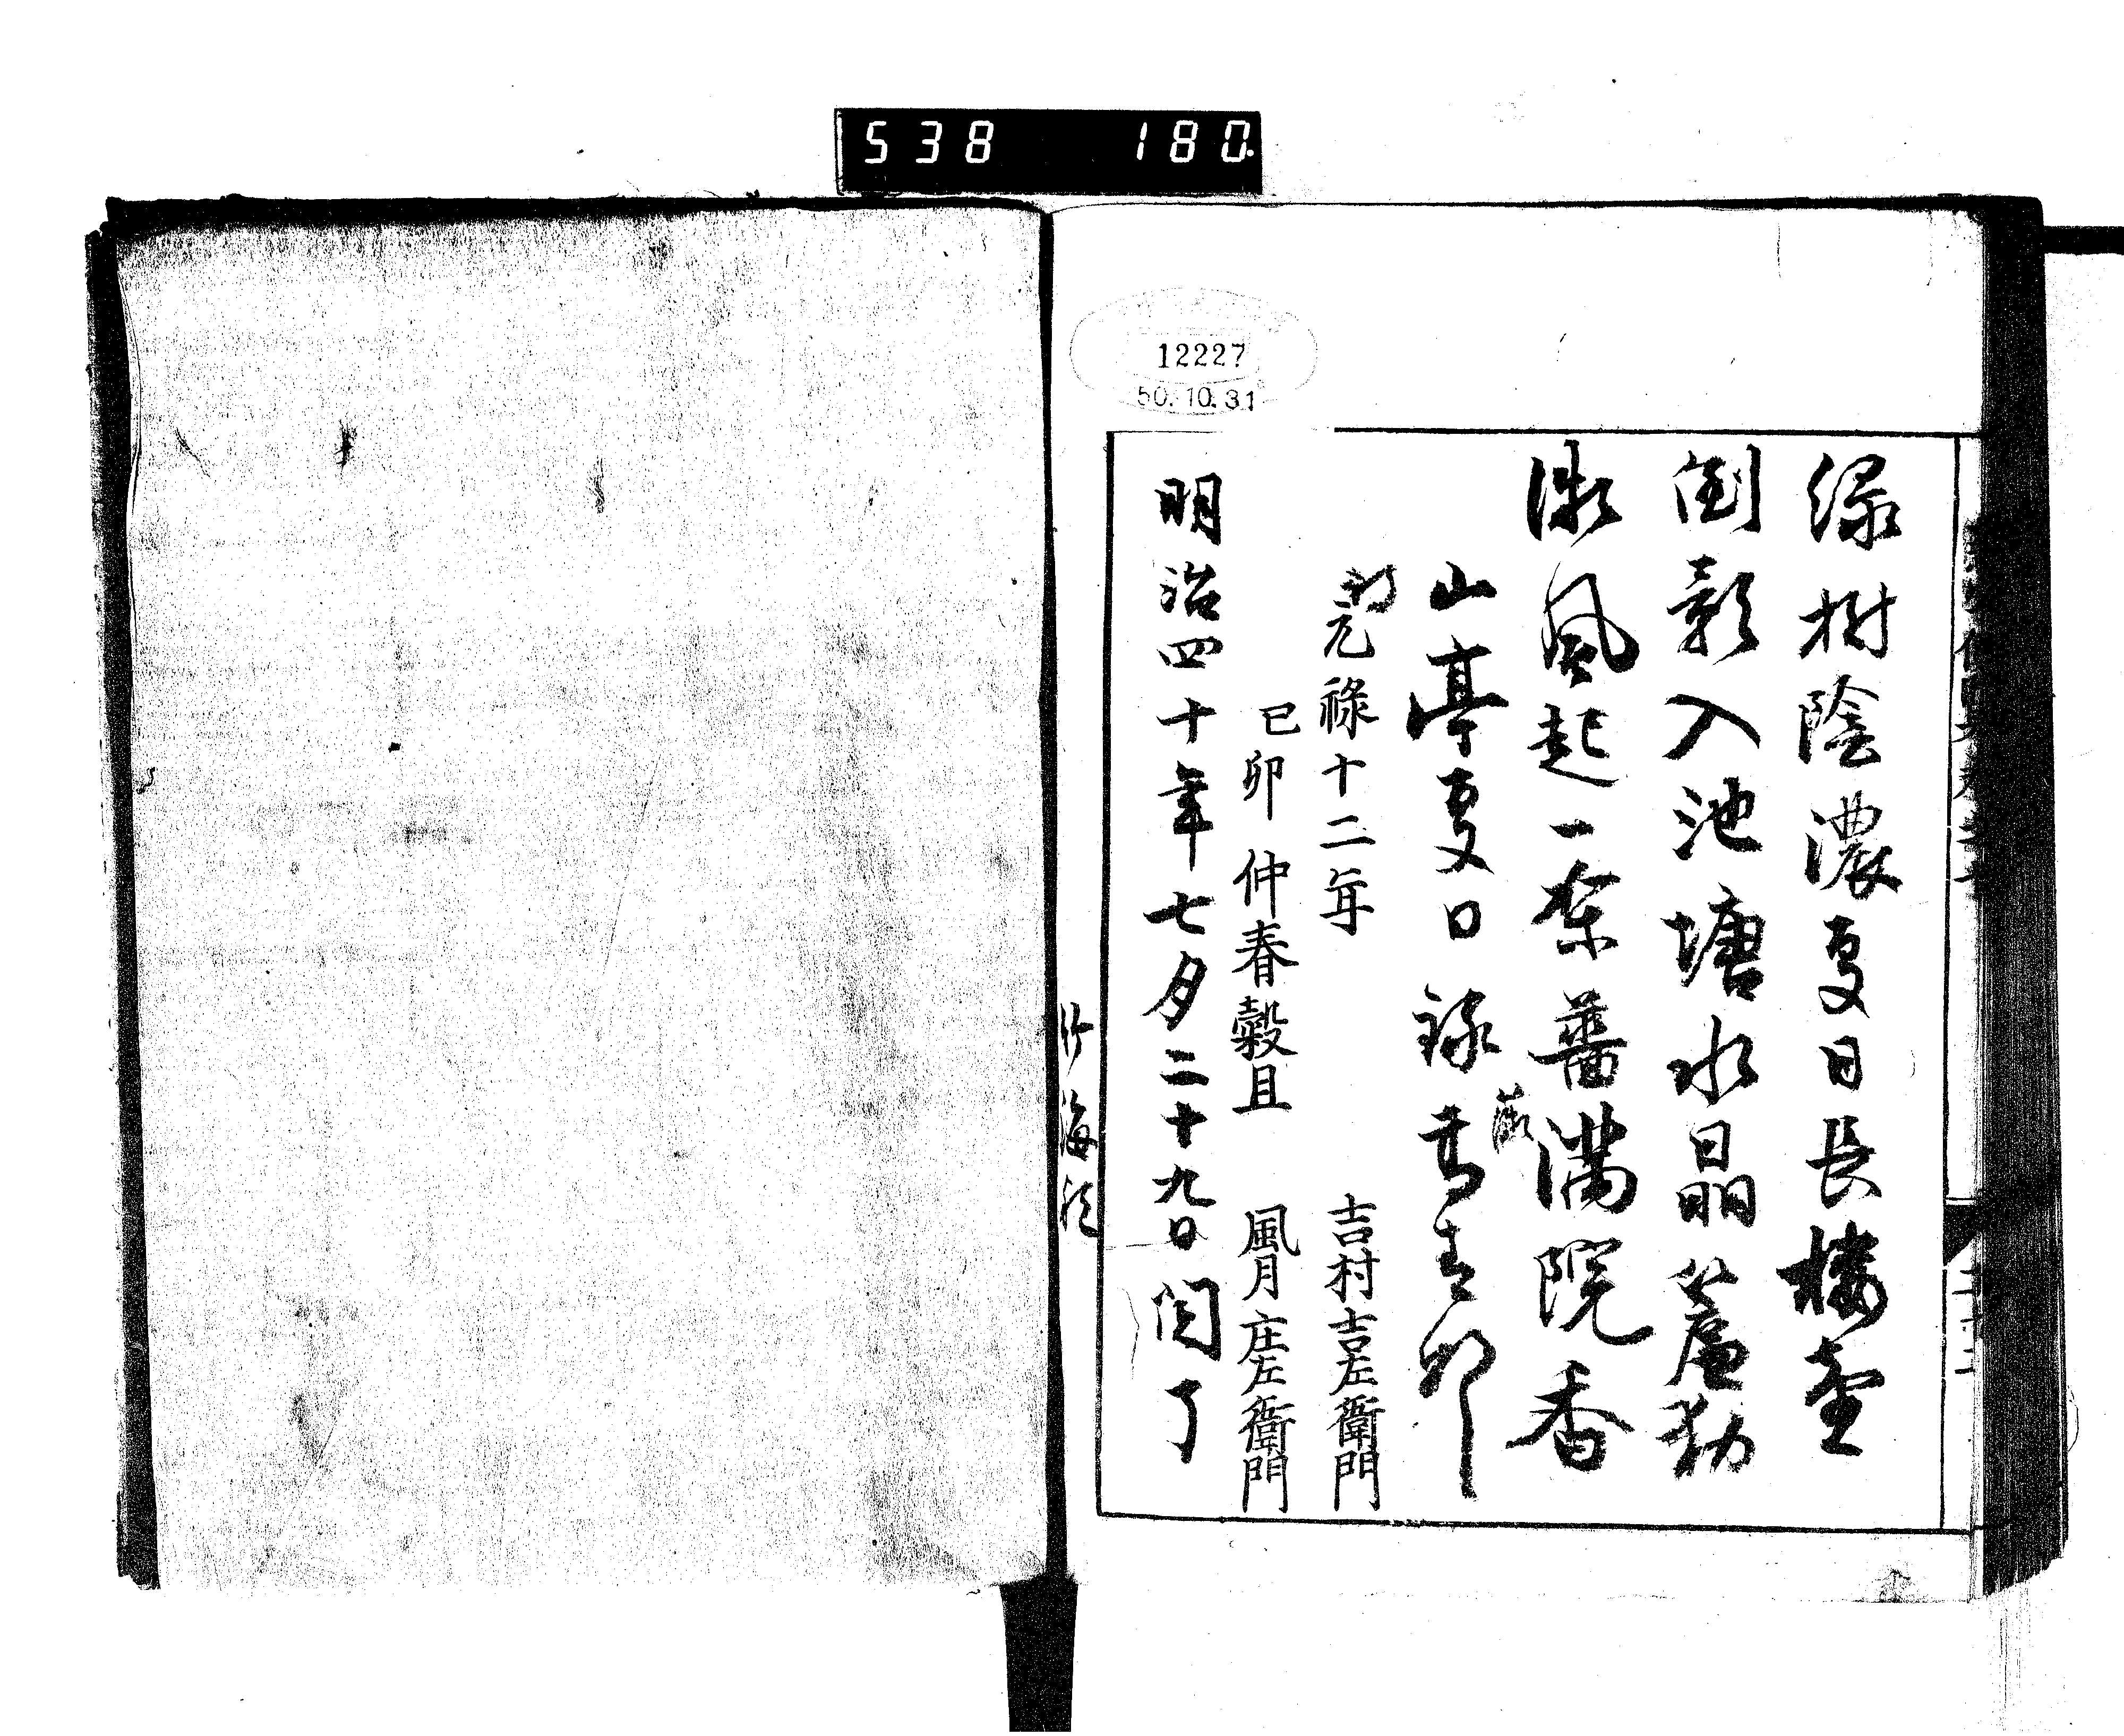 538 180.
12227
50.10.31
緑樹陰濃夏日長楼台
倒影入池塘水晶簾動
微風起一架薔満院香
薇
山亭夏日 録 高青邱
時元禄十二年 吉村吉左衛門
己卯 仲春穀且 風月庄左衛門
明治四十年七夕二十九日閲了
竹海